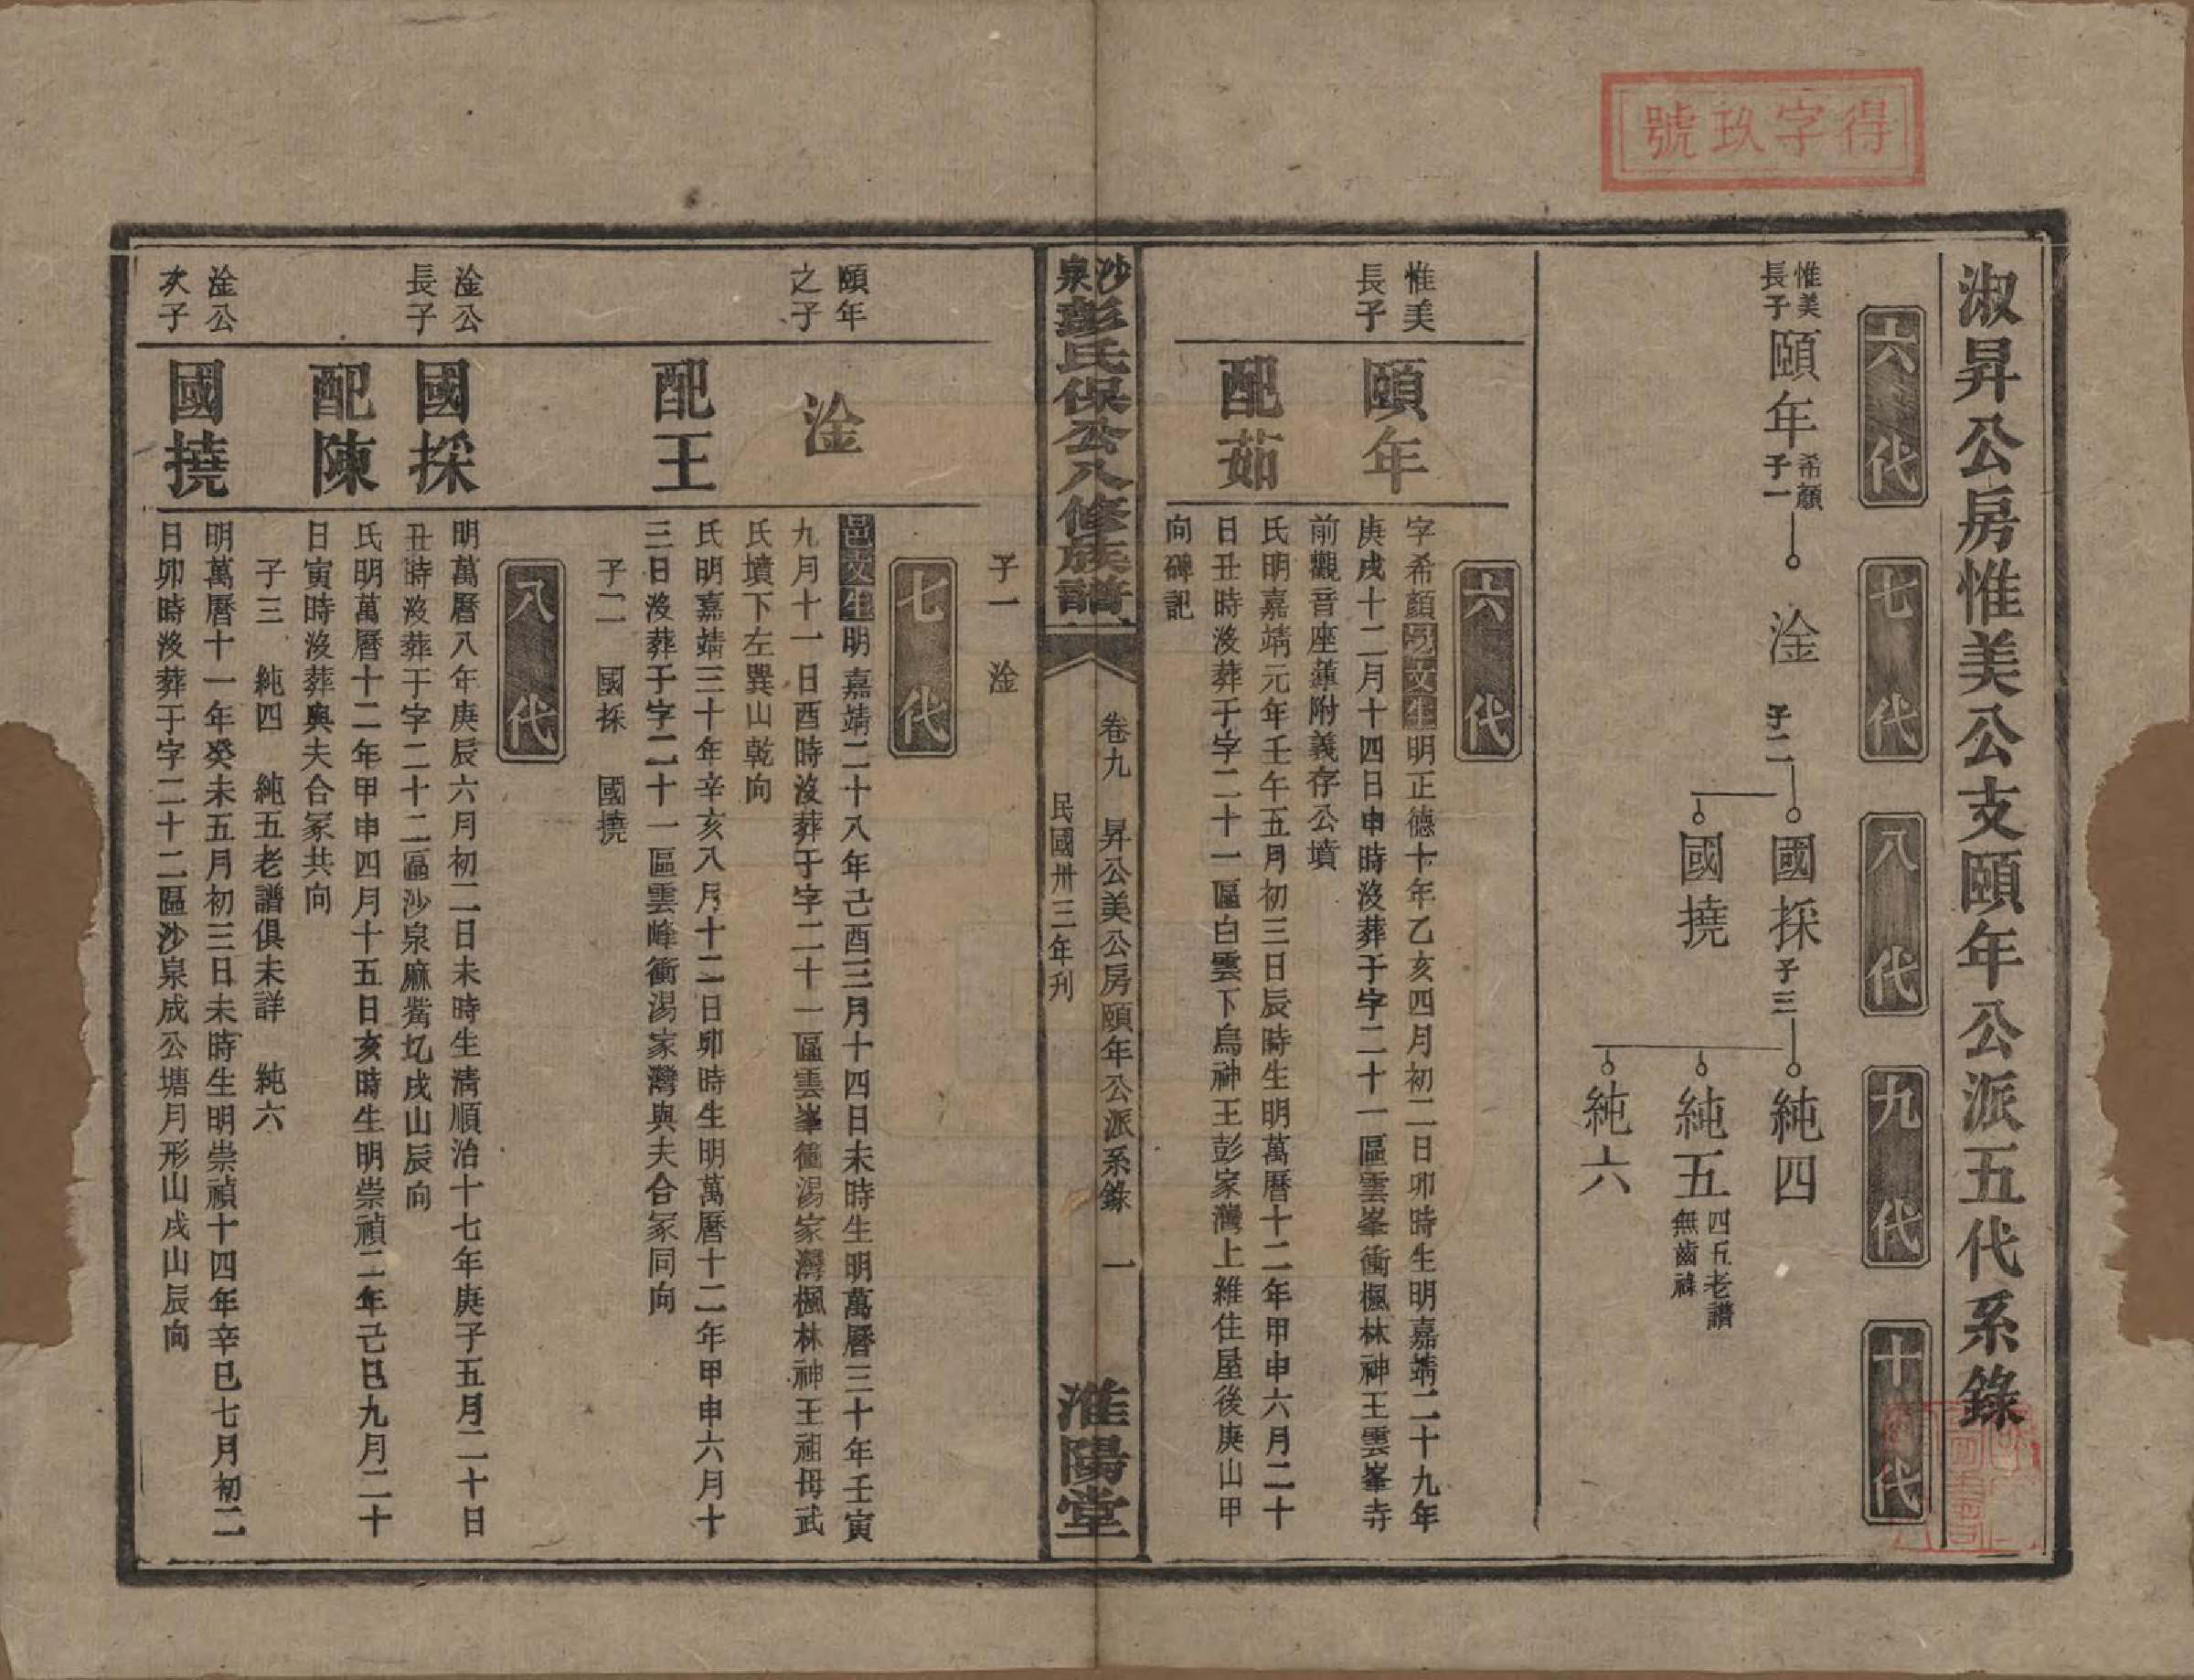 得字玖號
淑昇公房惟美公支頤年公派五代系錄
六代
七代
八代
九代
十代
惟美
長子
頤年
希顏
子一
淦
子二
國採
子三
純四
國撓
純五
四五老譜
無齒祿
純六
六代
惟美
長子
頤年
字希顏邑文生明正德十年乙亥四月初二日卯時生明嘉靖二十九年
庚戌十二月十四日申時沒葬于字二十一區雲峯衝楓林神王雲峯寺
前觀音座蓮附義存公墳
配茹
氏明嘉靖元年壬午五月初三日辰時生明萬曆十二年甲申六月二十
日丑時沒葬于字二十一區白雲下烏神王彭家灣上維住屋後庚山甲
向碑記
沙泉彭氏保公八修族譜
卷九
昇公美公房頤年公派系錄
一
民國卅三年刋
淮陽堂
子一　淦
七代
頤年
之子
淦
邑文生明嘉靖二十八年己酉三月十四日未時生明萬曆三十年壬寅
九月十一日酉時沒葬于字二十一區雲峯衝湯家灣楓林神王祖母武
氏墳下左巽山乾向
配王
氏明嘉靖三十年辛亥八月十二日卯時生明萬曆十二年甲申六月十
三日沒葬于字二十一區雲峰衝湯家灣與夫合冢同向
子二　國採　國撓
八代
淦公
長子
國採
明萬曆八年庚辰六月初二日未時生清順治十七年庚子五月二十日
丑時沒葬于字二十二區沙泉麻嘴圠戌山辰向
配陳
氏明萬曆十二年甲申四月十五日亥時生明崇禎二年己巳九月二十
日寅時沒葬與夫合冢共向
子三　純四　純五老譜俱未詳　純六
淦公
次子
國撓
明萬曆十一年癸未五月初三日未時生明崇禎十四年辛巳七月初二
日卯時沒葬于字二十二區沙泉成公塘月形山戌山辰向